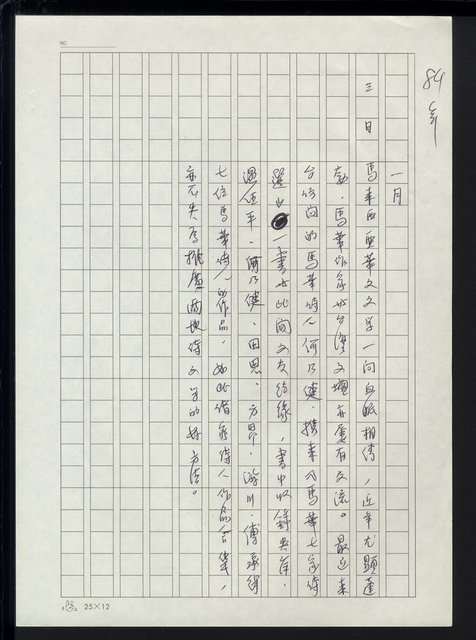 NO.
84年
一月
三日
馬來西亞華文文學一向血脈相傳，近年尤顯蓬
勃，馬華作家與台灣文壇亦屢有交流。最近來
台訪問的馬華詩人何乃健，攜來《馬華七家詩
選》一書與此間文友結緣，書中收錄吳岸、
溫任平、何乃健、田思、方昂、游川、傅承得
七位馬華詩人的作品，如此諸家詩人作品合集，
亦不失為推廣兩地詩文學的好方法。
25×12